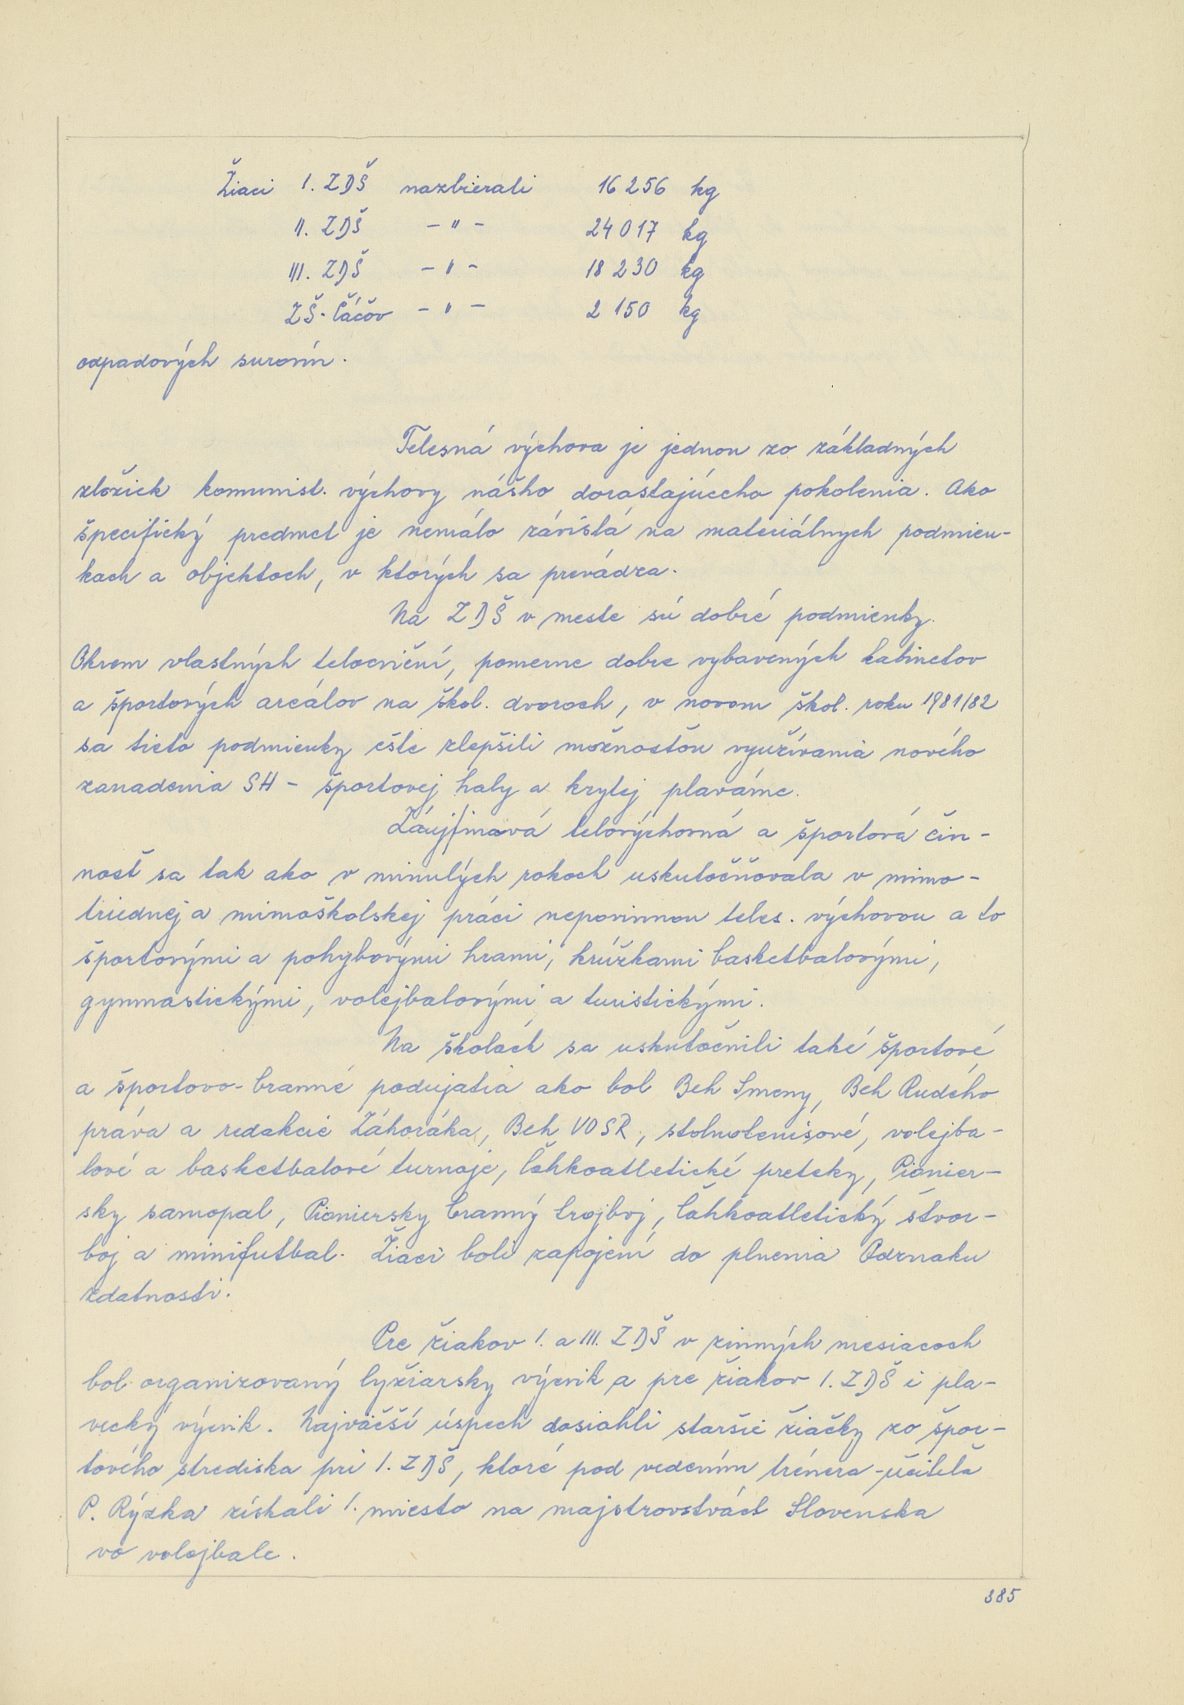 Žiaci I. ZDŠ nazbierali 16 256 kg
II. ZDŠ - " - 24 017 kg
III. ZDŠ - " - 18 230 kg
ZŠ - Čáčov - " - 2 150 kg
odpadových surovín.
Telesná výchova je jednou zo základných
zložiek komunist. výchovy nášho dorastajúceho pokolenia. Ako
špecifický predmet je nemálo závislá na materiálnych podmien-
kach a objektoch, v ktorých sa prevádza.
Na ZDŠ v meste sú dobré podmienky.
Okrem vlastných telocviční, pomerne dobre vybavených kabinetov
a športových areálov na škol. dvoroch, v novom škol. roku 1981/82
sa tieto podmienky ešte zlepšili možnosťou využívania nového
zariadenia SH - športovej haly a krytej plavárne.
Záujmová telovýchovná a športová čin-
nosť sa tak ako v minulých rokoch uskutočňovala v mimo-
triednej a mimoškolskej práci nepovinnou teles. výchovou a to
športovými a pohybovými hrami, krúžkami basketbalovými,
gymnastickými, volejbalovými a turistickými.
Na školách sa uskutočnili také športové
a športovo-branné podujatia ako bol Beh Smeny, Beh Rudého
práva a redakcie Záhoráka, Beh VOSR, stolnotenisové, volejba-
lové a basketbalové turnaje, ľahkoatletické preteky, Pionier-
sky samopal, Pioniersky branný trojboj, ľahkoatletický štvor-
boj a minifutbal. Žiaci boli zapojení do plnenia Odznaku
zdatnosti.
Pre žiakov I. a III. ZDŠ v zimných mesiacoch
bol organizovaný lyžiarsky výcvik a pre žiakov I. ZDŠ i pla-
vecký výcvik. Najväčší úspech dosiahli staršie žiačky zo špor-
tového strediska pri I. ZDŠ, ktoré pod vedením trénera - učiteľa
P. Rýzka získali I. miesto na majstrovstvách Slovenska
vo volejbale.
385